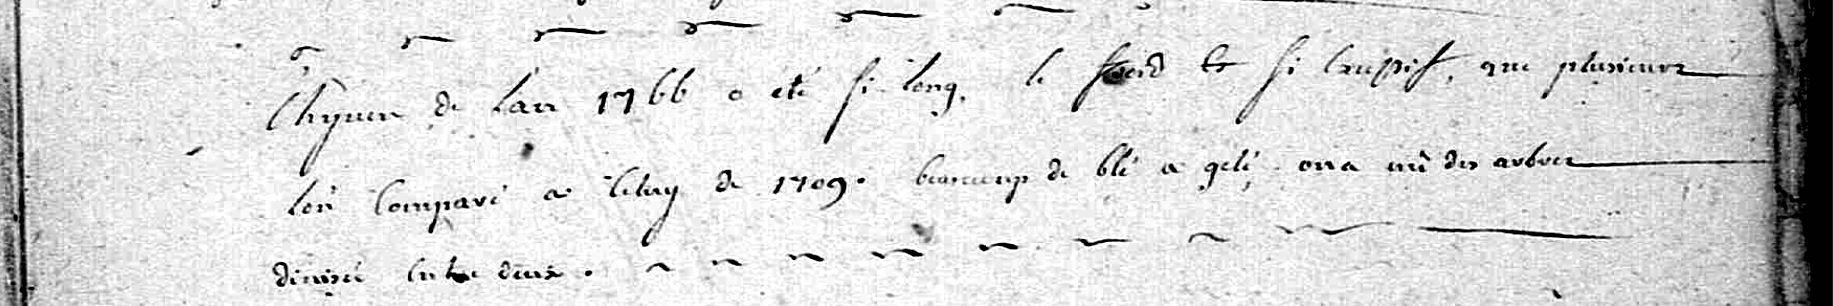 L'hyver de l'an 1766 a été si long, le froid et si excessif, que plusieurs
l'on comparé a celuy de 1709. beaucoup de blé a gelé. on a vû des arbres
divisé entre deux.